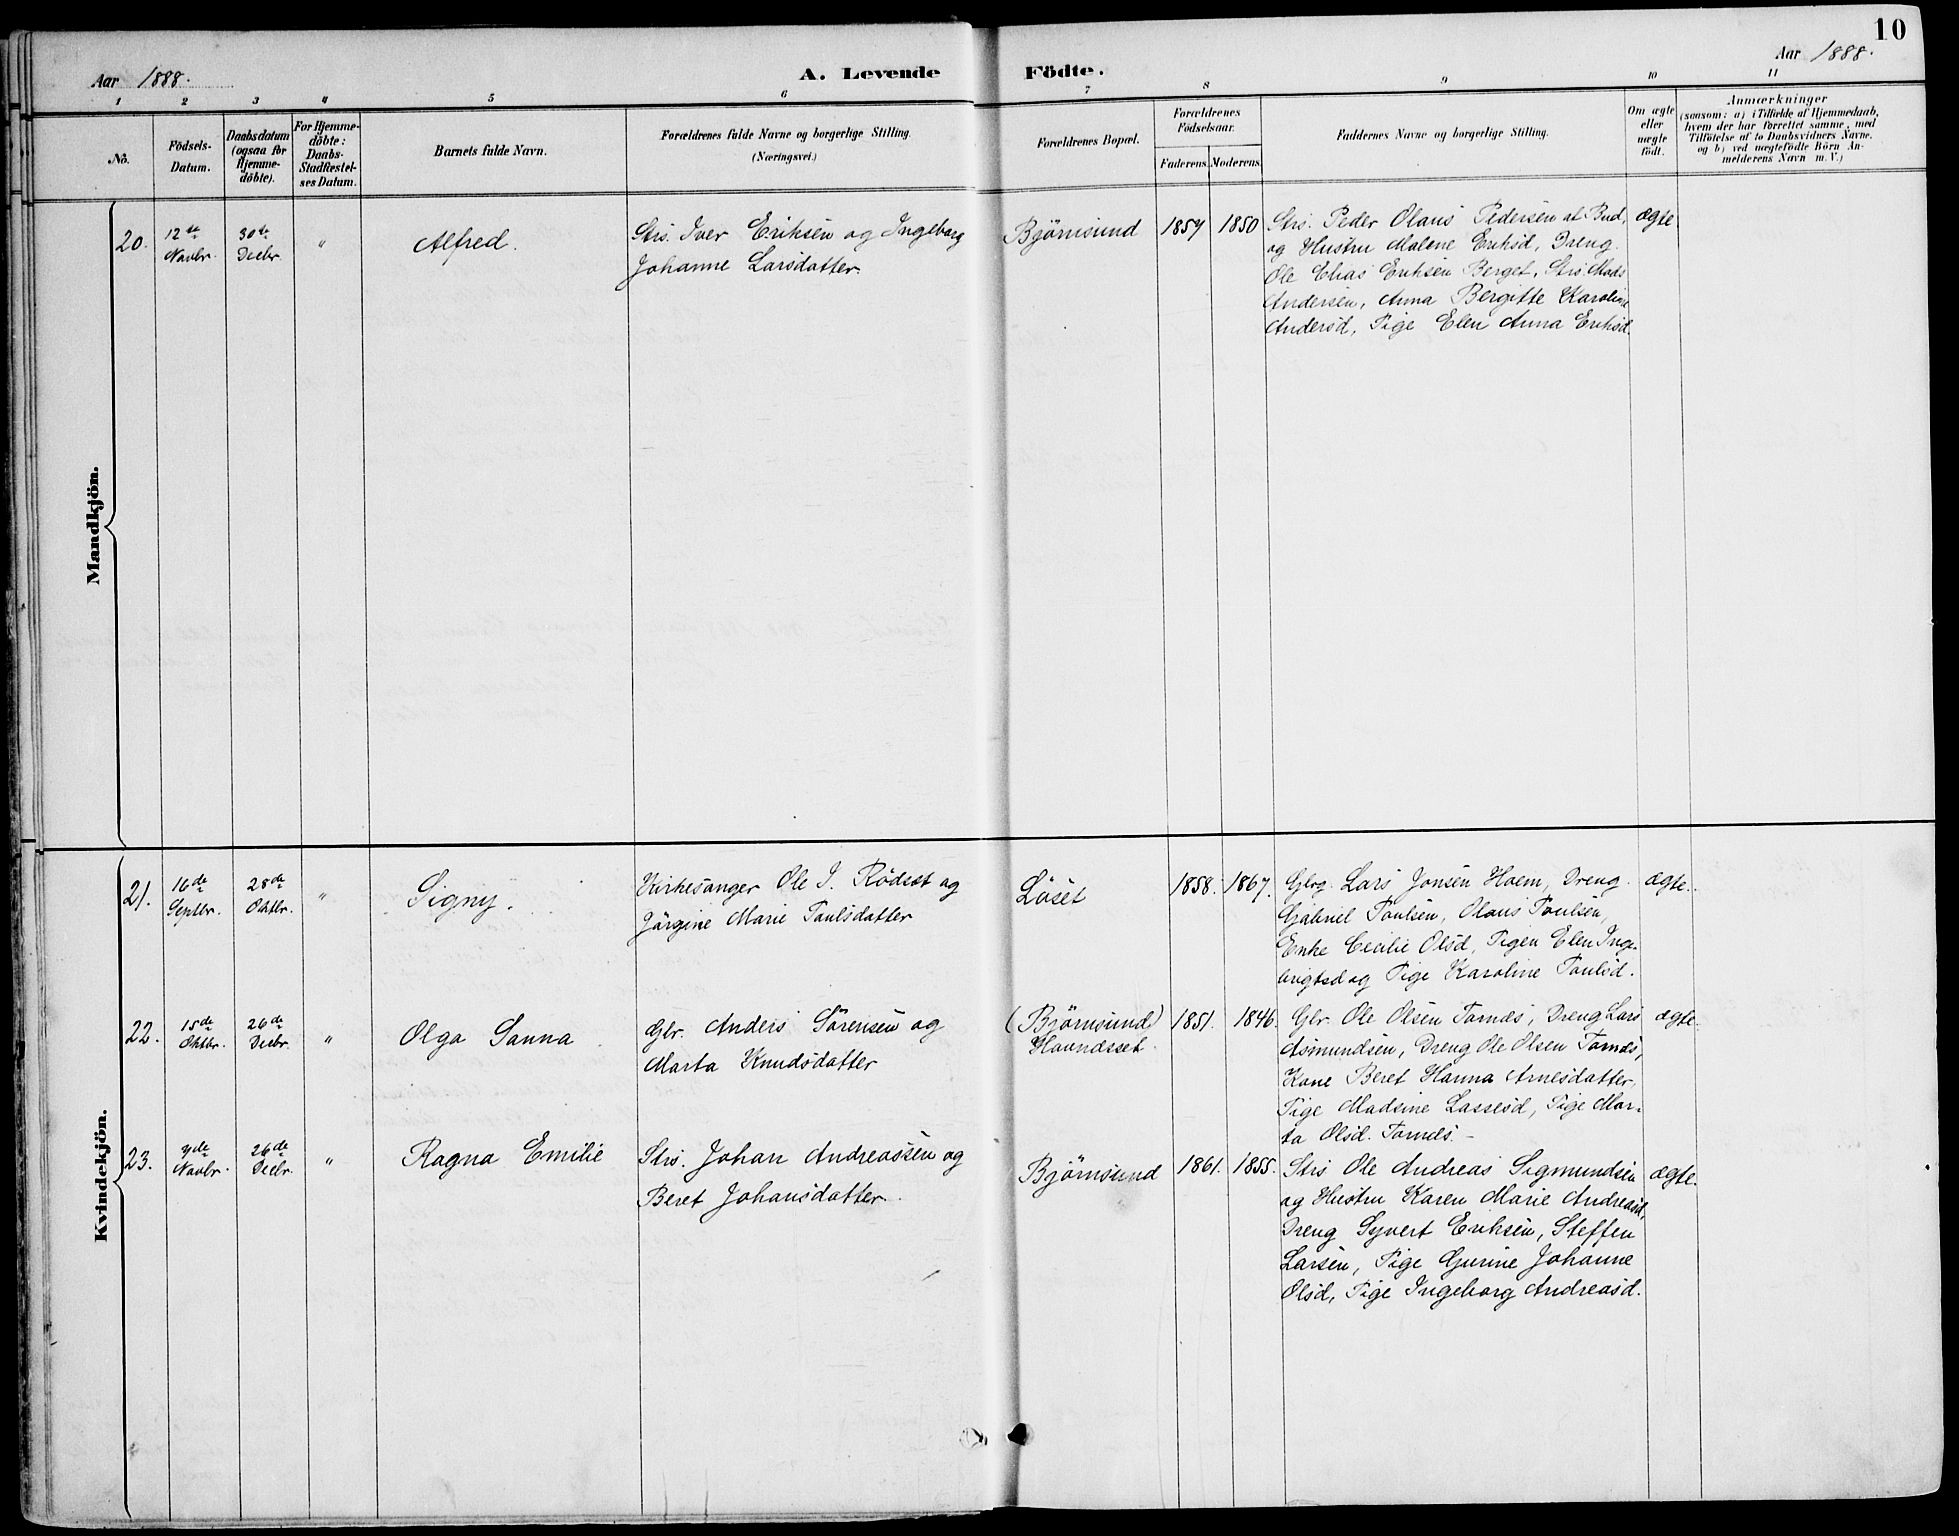 10
Aar 1888.
A. Levende
Födte.
Aar 1888.
1 2 3 4 5 6 7 8 9 10 11
No.
Födsels-
Datum.
Daabsdatum
(ogsaa for
Hjemme-
döbte).
For Hjemme-
döbte:
Daabs-
Stadfæstel-
ses Datum.
Barnets fulde Navn.
Forældrenes fulde Navne og borgerlige Stilling.
(Næringsvei.)
Forældrenes Bopæl.
Forældrenes
Födselsaar.
Faderens. Moderens.
Faddernes Navne og borgerlige Stilling.
Om ægte
eller
uægte
födt.
Anmærkninger
(saasom: a) i Tilfælde af Hjemmedaab,
hvem der har forrettet samme, med
Tilföielse af to Daabsvidners Navne,
og b) ved uægtefödte Börn An-
melderens Navn m. V.)
Mandkjön.
20.
12te
Novbr.
30te
Decbr.
"
Alfred.
Strs. Iver Eriksen og Ingeborg
Johanne Larsdatter.
Björnsund
1857
1850
Strs. Peder Olaus Pedersen af Bud,
og Hustru Malene Eriksd, Dreng
Ole Elias Eriksen Berget, Strs. Mads
Andersen, Anna Bergitte Karoline
Andersd, Pige Elen Anna Eriksd.
ægte
Kvindekjön.
21.
16de
Septbr.
28de
Oktbr.
"
Signy.
Kirkesanger Ole J. Rödset og
Jörgine Marie Paulsdatter
Löset
1858.
1867.
Gbrg. Lars Jonsen Haem, Dreng
Gabriel Poulsen, Olaus Poulsen,
Enke Cecilie Olsd, Pigen Elen Inge-
brigtsd og Pige Karoline Poulsd.
ægte.
22.
15de
Oktbr.
26de
Decbr.
"
Olga Sanna
Gbr. Anders Sörensen og
Marta Knudsdatter
(Björnsund)
Havnæsset.
1851.
1846.
Gbr. Ole Olsen Tornæs, Dreng Lars
Asmundsen, Dreng Ole Olsen Tornæs,
Kone Beret Hanna Arnesdatter,
Pige Madsine Lassesd, Pige Mar-
ta Olsd. Tornæs. -
ægte.
23.
3de
Novbr.
26de
Decbr.
"
Ragna Emilie
Strs. Johan Andreassen og
Beret Johansdatter.
Björnsund
1861.
1855.
Strs Ole Andreas Sigmundsen
og Hustru Karen Marie Andreasd,
Dreng Syvert Eriksen, Steffen
Larsen, Pige Gurine Johanne
Olsd, Pige Ingeborg Andreasd.
ægte.